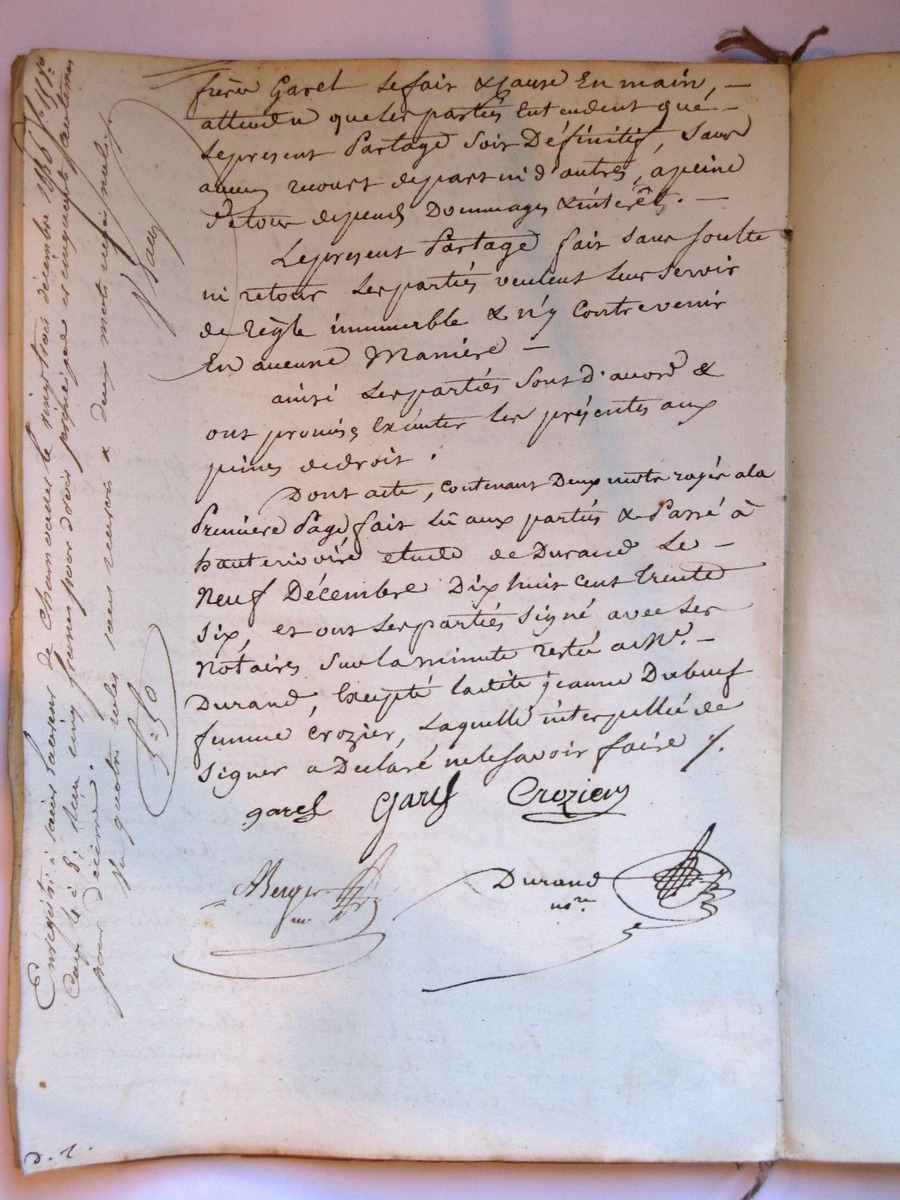 frères Garel le fait & cause En main, —
attendu que les parties Entendent que —
le present Partage Soit Définitif, Sans
aucun recours de part ni d'autres, apeine
De tous depens Dommages & intérêts. —
Le present Partage fait Sans Soulte
ni retour Les parties veulent leur Servir
de Règle immuable & n'y Contrevenir
En aucune Maniere —
ainsi Les parties Sont d'acord &
ont promis Exécuter les présentes aux
peines de droit.
Dont acte, Contenant Deux mots rayés a la
Premiere Page fait Lû aux parties & Passé à
hauterivoire étude de Durand Le —
Neuf Décembre Dix huit Cent trente
Six, et ont Les parties Signé avec Les
Notaires Sur la minute restée a Me. —
Durand, Excepté ladite jeanne Dubeuf
femme Crozier, Laquelle interpellée de
Signer a Déclaré ne le Savoir faire /.
garel Garel Crozier
Berger
nre
Durand
nore
Enregistré à Saint Laurent de Chamousset le vingt trois décembre 1836 fo 18 vo
Cases 4 à 8; Reçu cinq francs pour droit principal et cinquante centimes
pour décime.
Sur quatre rôles sans renvois & deux mots rayés nuls.
5=50